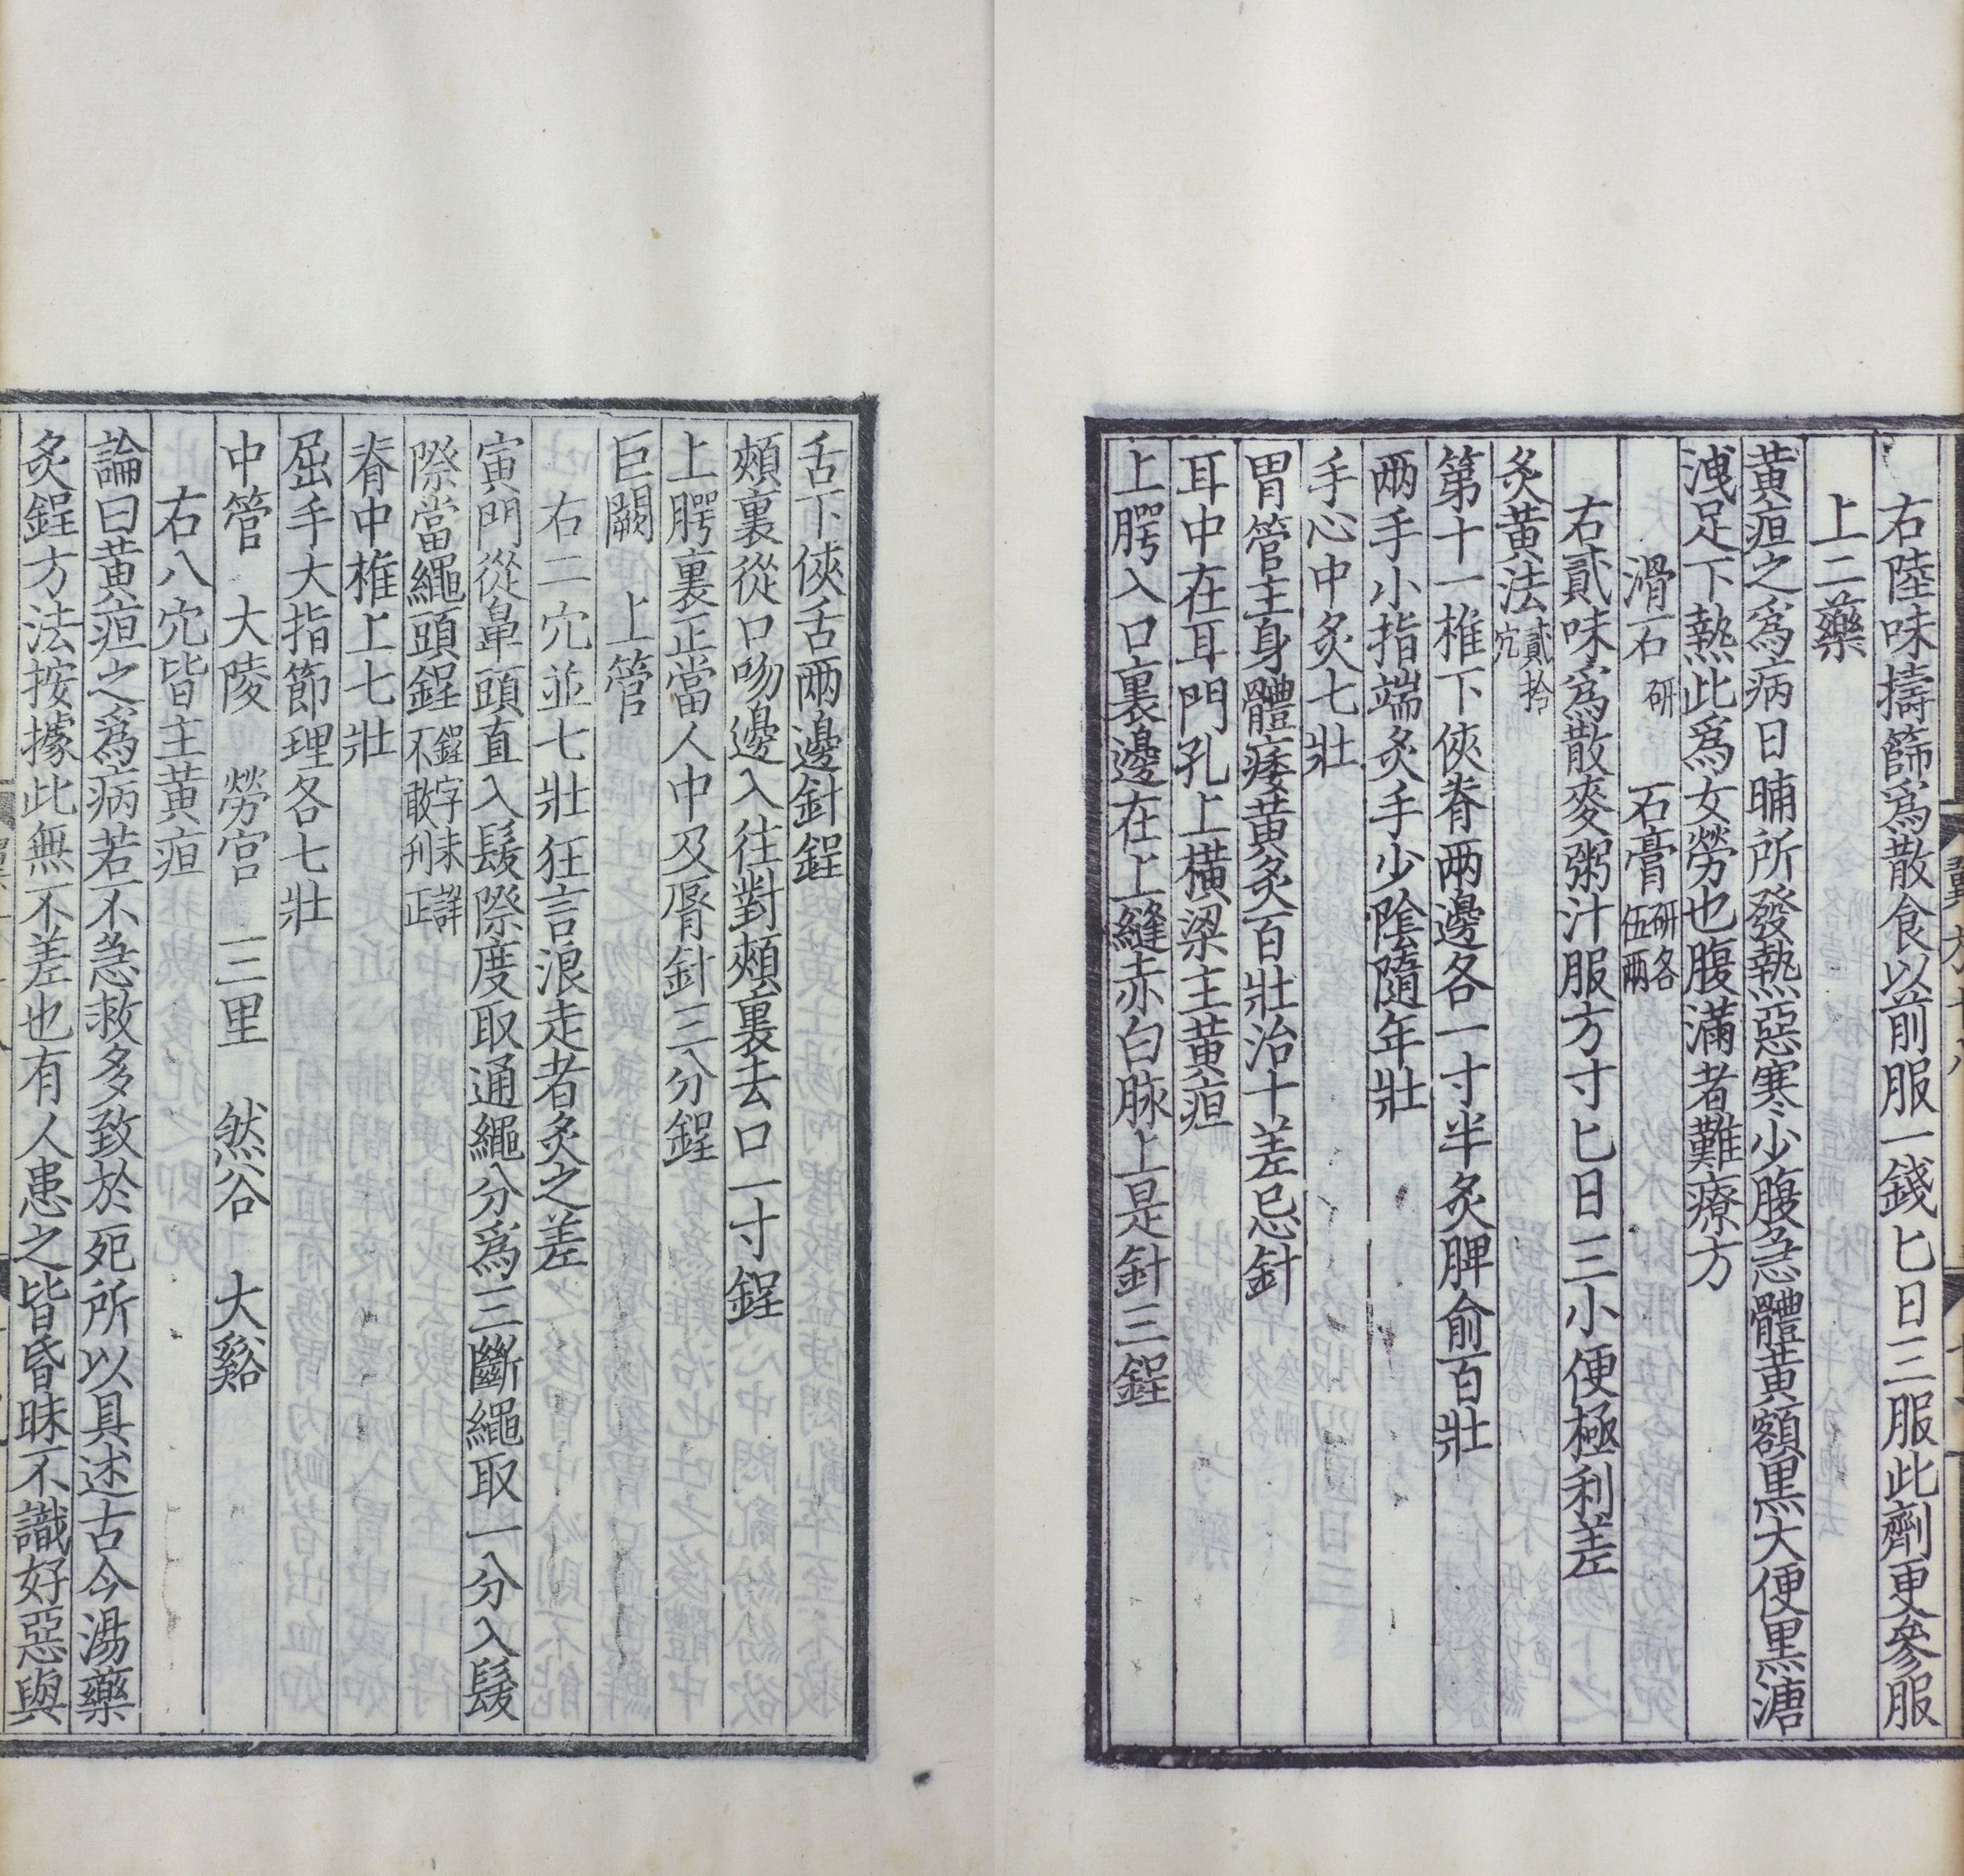 右陸味擣篩爲散食以前服一錢匕日三服此劑更參服
上二藥
黃疸之爲病日晡所發熱惡寒少腹急體黃額黑大便黑溏
洩足下熱此爲女勞也腹滿者難療方
滑石研 石膏研各伍兩
右貳味爲散麥粥汁服方寸匕日三小便極利差
灸黃法貳拾穴
第十一椎下俠脊兩邊各一寸半灸脾俞百壯
兩手小指端灸手少陰隨年壯
手心中灸七壯
胃管主身體痿黃灸百壯治十差忌針
耳中在耳門孔上橫梁主黃疸
上腭入口裏邊在上縫赤白脉上是針三鋥
舌下俠舌兩邊針鋥
頰裏從口吻邊入往對頰裏去口一寸鋥
上腭裏正當人中及脣針三分鋥
巨闕 上管
右二穴並七壯狂言浪走者灸之差
寅門從鼻頭直入髮際度取通繩分爲三斷繩取一分入髮
際當繩頭鋥鋥字未詳不敢刋正
脊中椎上七壯
屈手大指節理各七壯
中管 大陵 勞宮 三里 然谷 大谿
右八穴皆主黃疸
論曰黃疸之爲病若不急救多致於死所以具述古今湯藥
灸鋥方法按據此無不差也有人患之皆昏昧不識好惡與